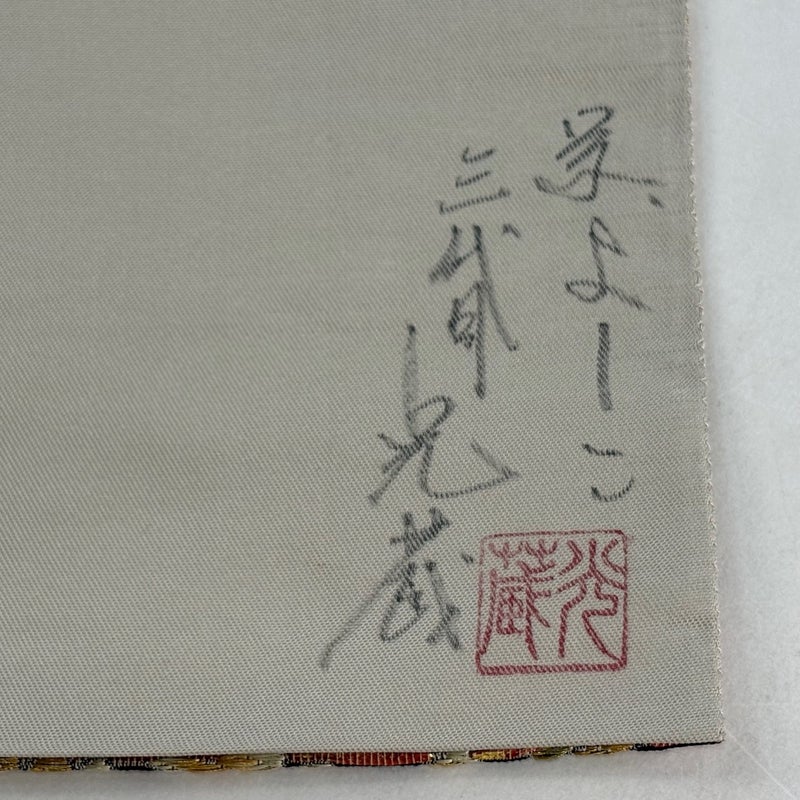 よーこ
三代目
光蔵
光蔵